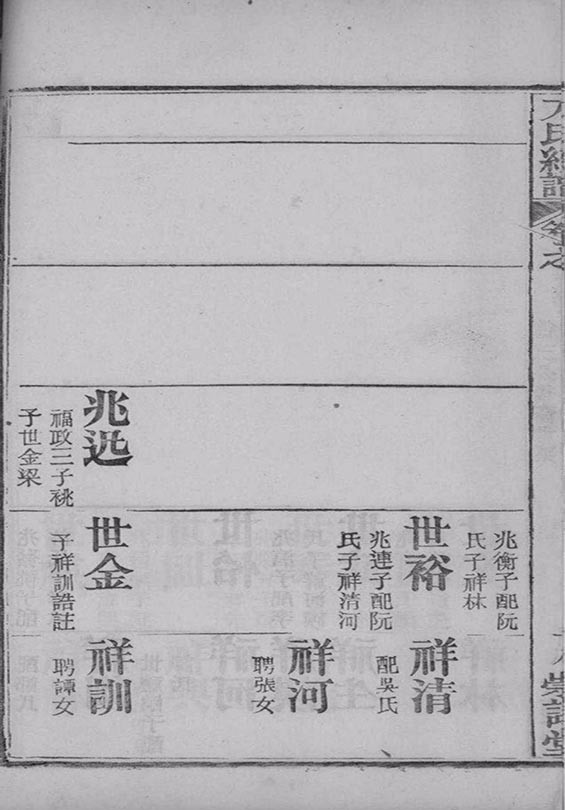 氏總譜
卷之
兆
福政三子祧
子世金梁
兆衡子配阮
氏子祥林
世裕
兆連子配阮
氏子祥清河
世金
子祥訓誥註
祥清
配吳氏
祥河
聘張女
祥訓
聘譚女